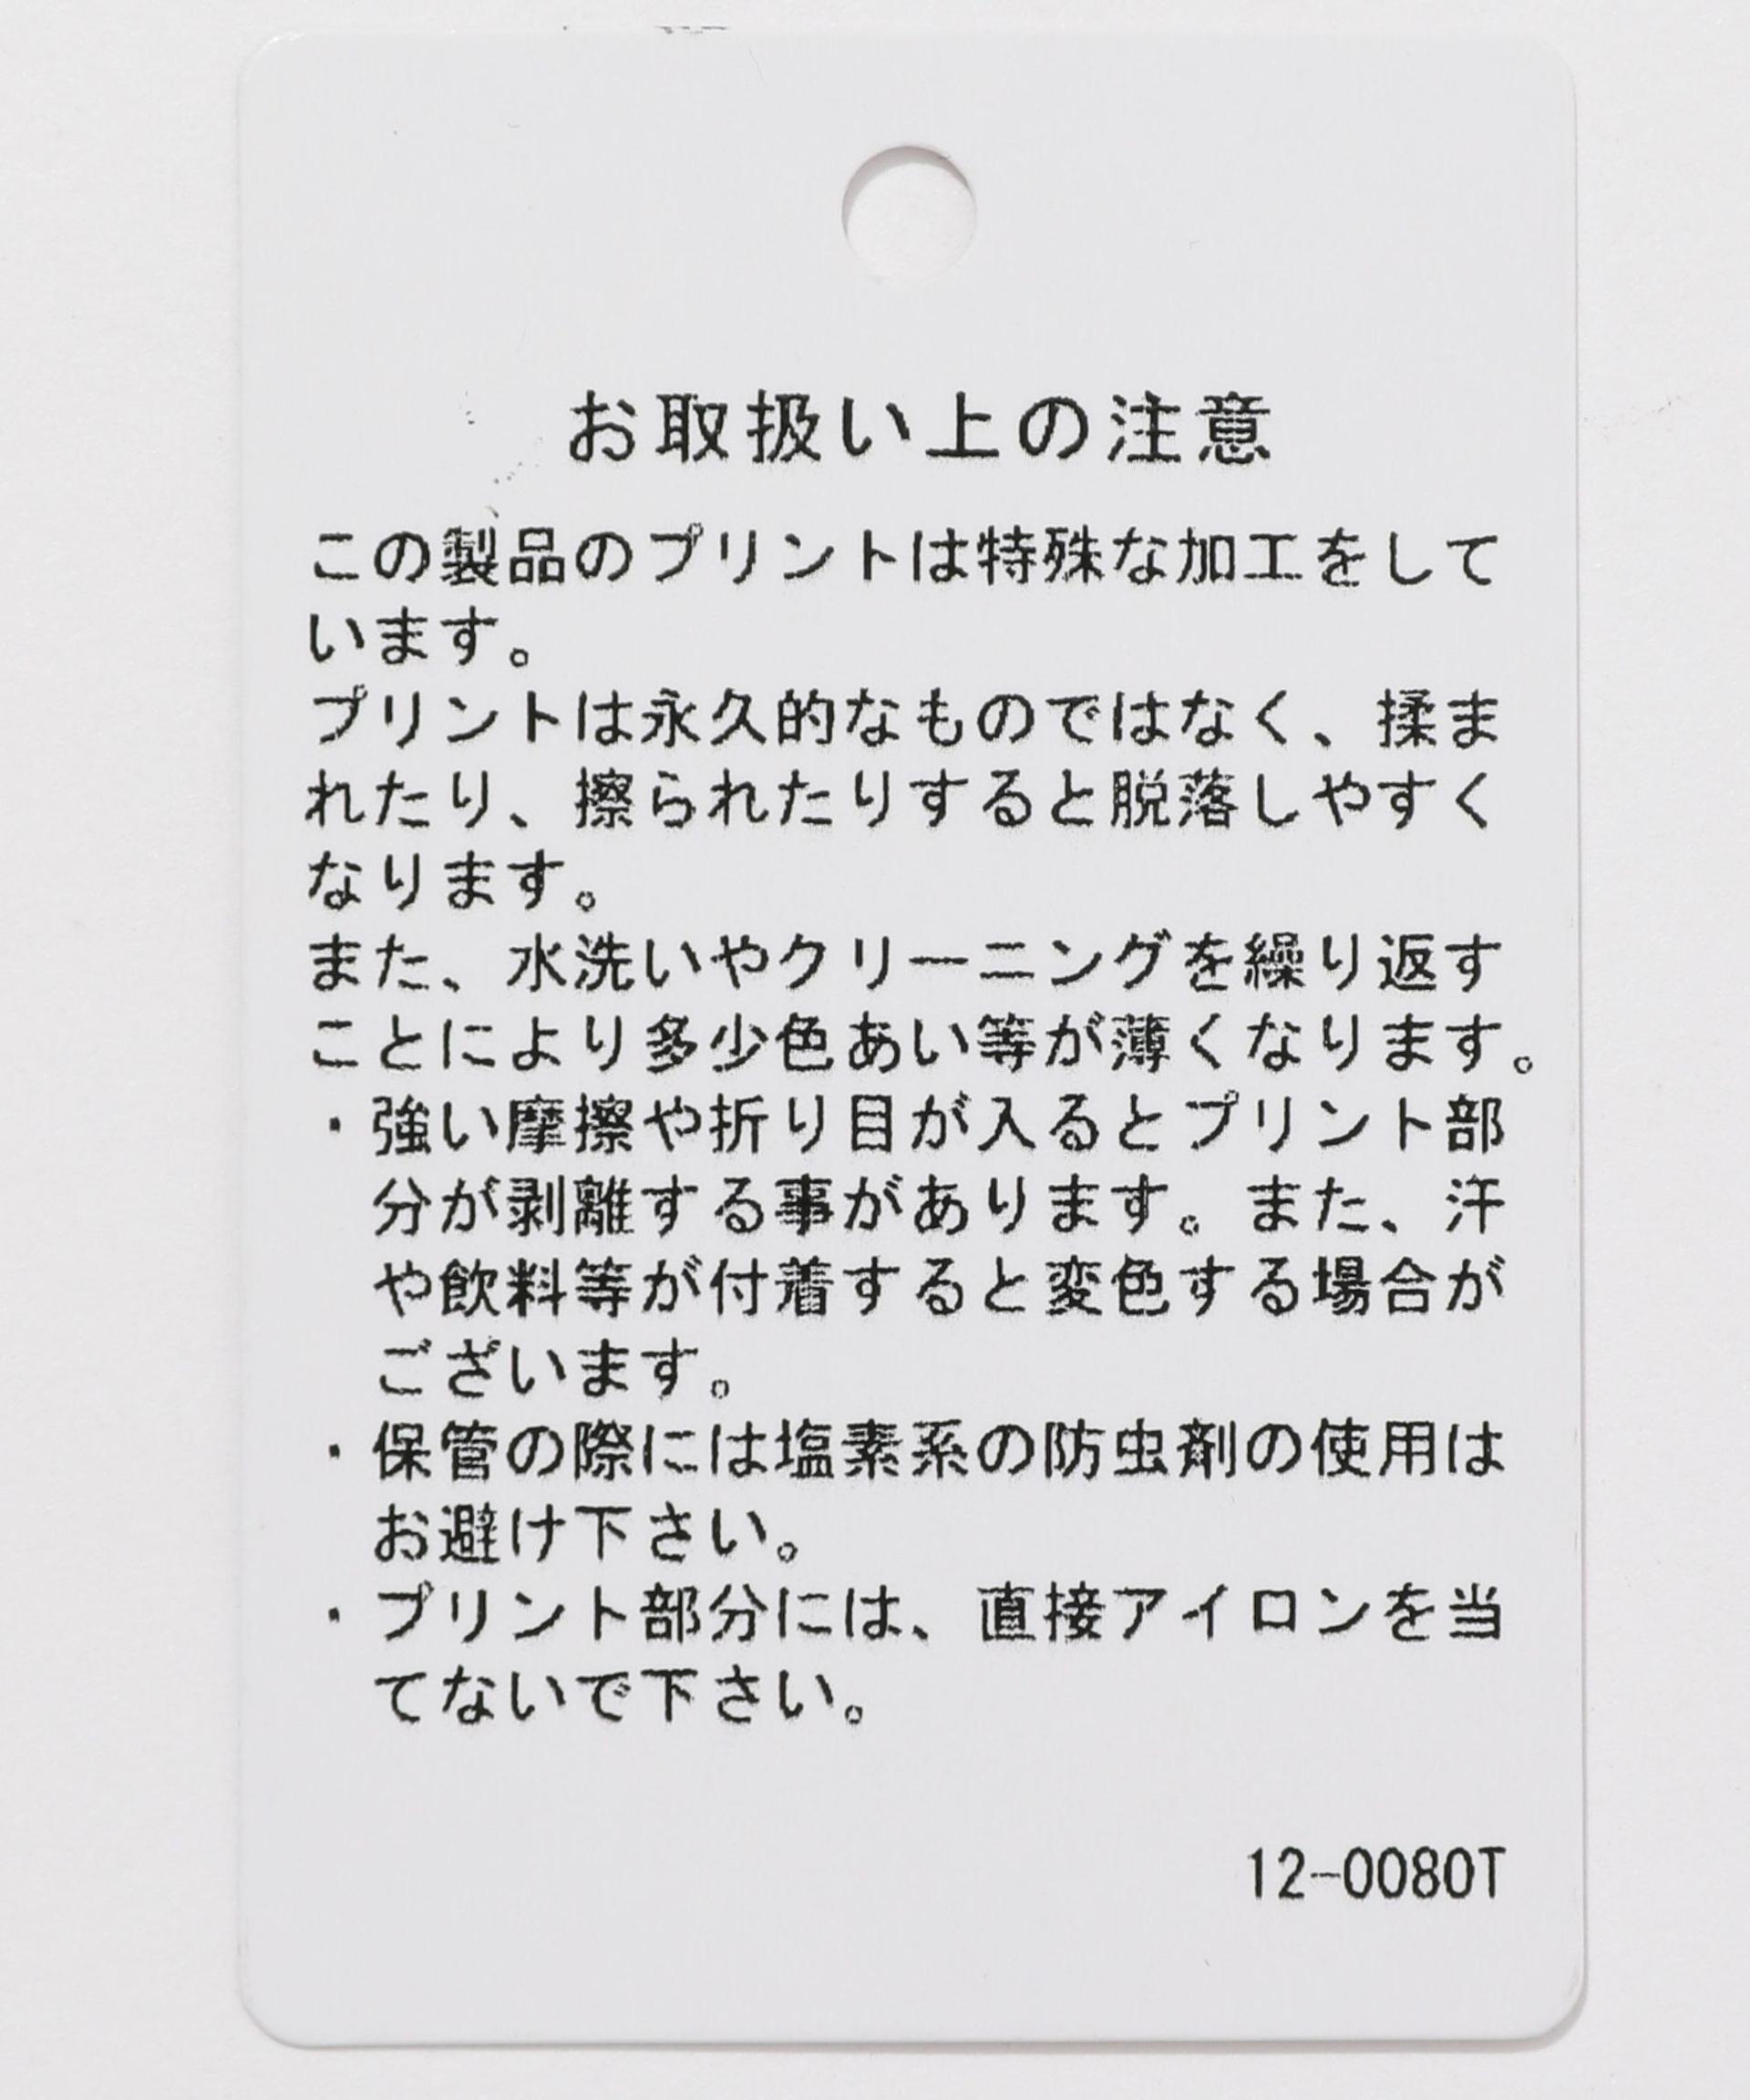 お取扱い上の注意
この製品のプリントは特殊な加工をして
います。
プリントは永久的なものではなく、揉ま
れたり、擦られたりすると脱落しやすく
なります。
また、水洗いやクリーニングを繰り返す
ことにより多少色あい等が薄くなります。
・強い摩擦や折り目が入るとプリント部
分が剥離する事があります。また、汗
や飲料等が付着すると変色する場合が
ございます。
・保管の際には塩素系の防虫剤の使用は
お避け下さい。
・プリント部分には、直接アイロンを当
てないで下さい。
12-0080T